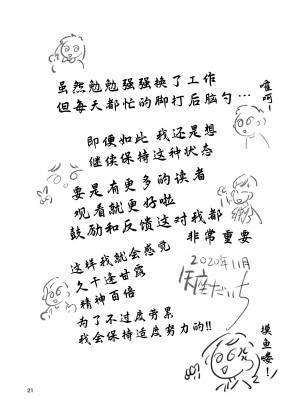 虽然勉勉强强换了工作
但每天都忙的脚打后脑勺…
喧呵!
即便如此 我还是想
继续保持这种状态
要是有更多的读者
观看就更好啦
鼓励和反馈这对我都
非常重要
这样我就会感觉
久干逢甘露
精神百倍
为了不过度劳累
我会保持适度努力的!!
2020年11月
摸鱼喽!
21